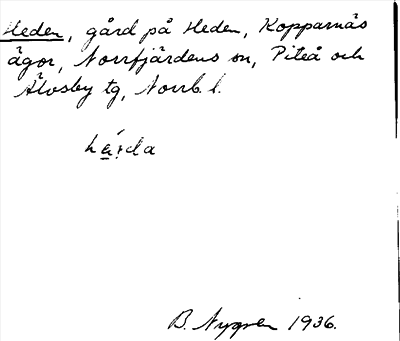 Heden, gård på Heden, Kopparnäs
ägor, Norrfjärdens sn, Piteå och
Älvsby tg, Norrb. l.
B. Nygren 1936.